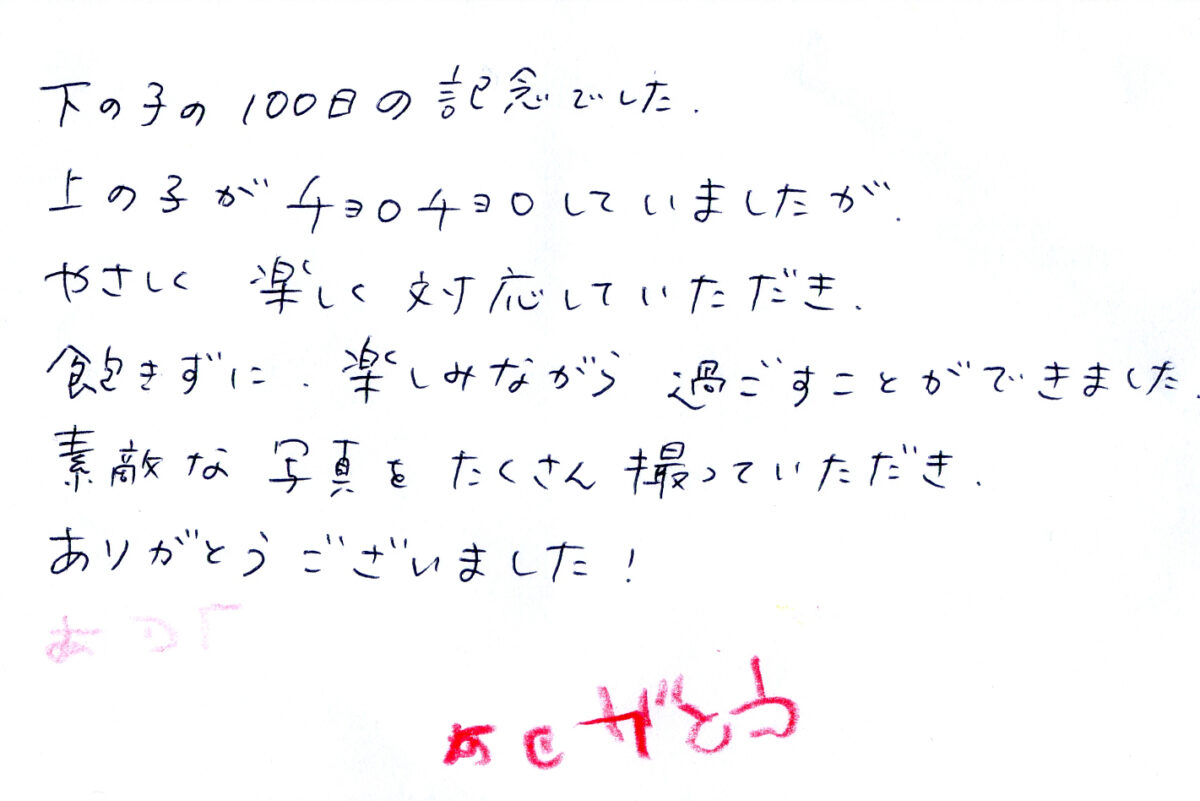 下の子の100日の記念でした.
上の子がチョロチョロしていましたが.
やさしく 楽しく 対応していただき.
飽きずに. 楽しみながら 過ごすことができました.
素敵な 写真を たくさん 撮っていただき.
ありがとうございました!
ありがとう